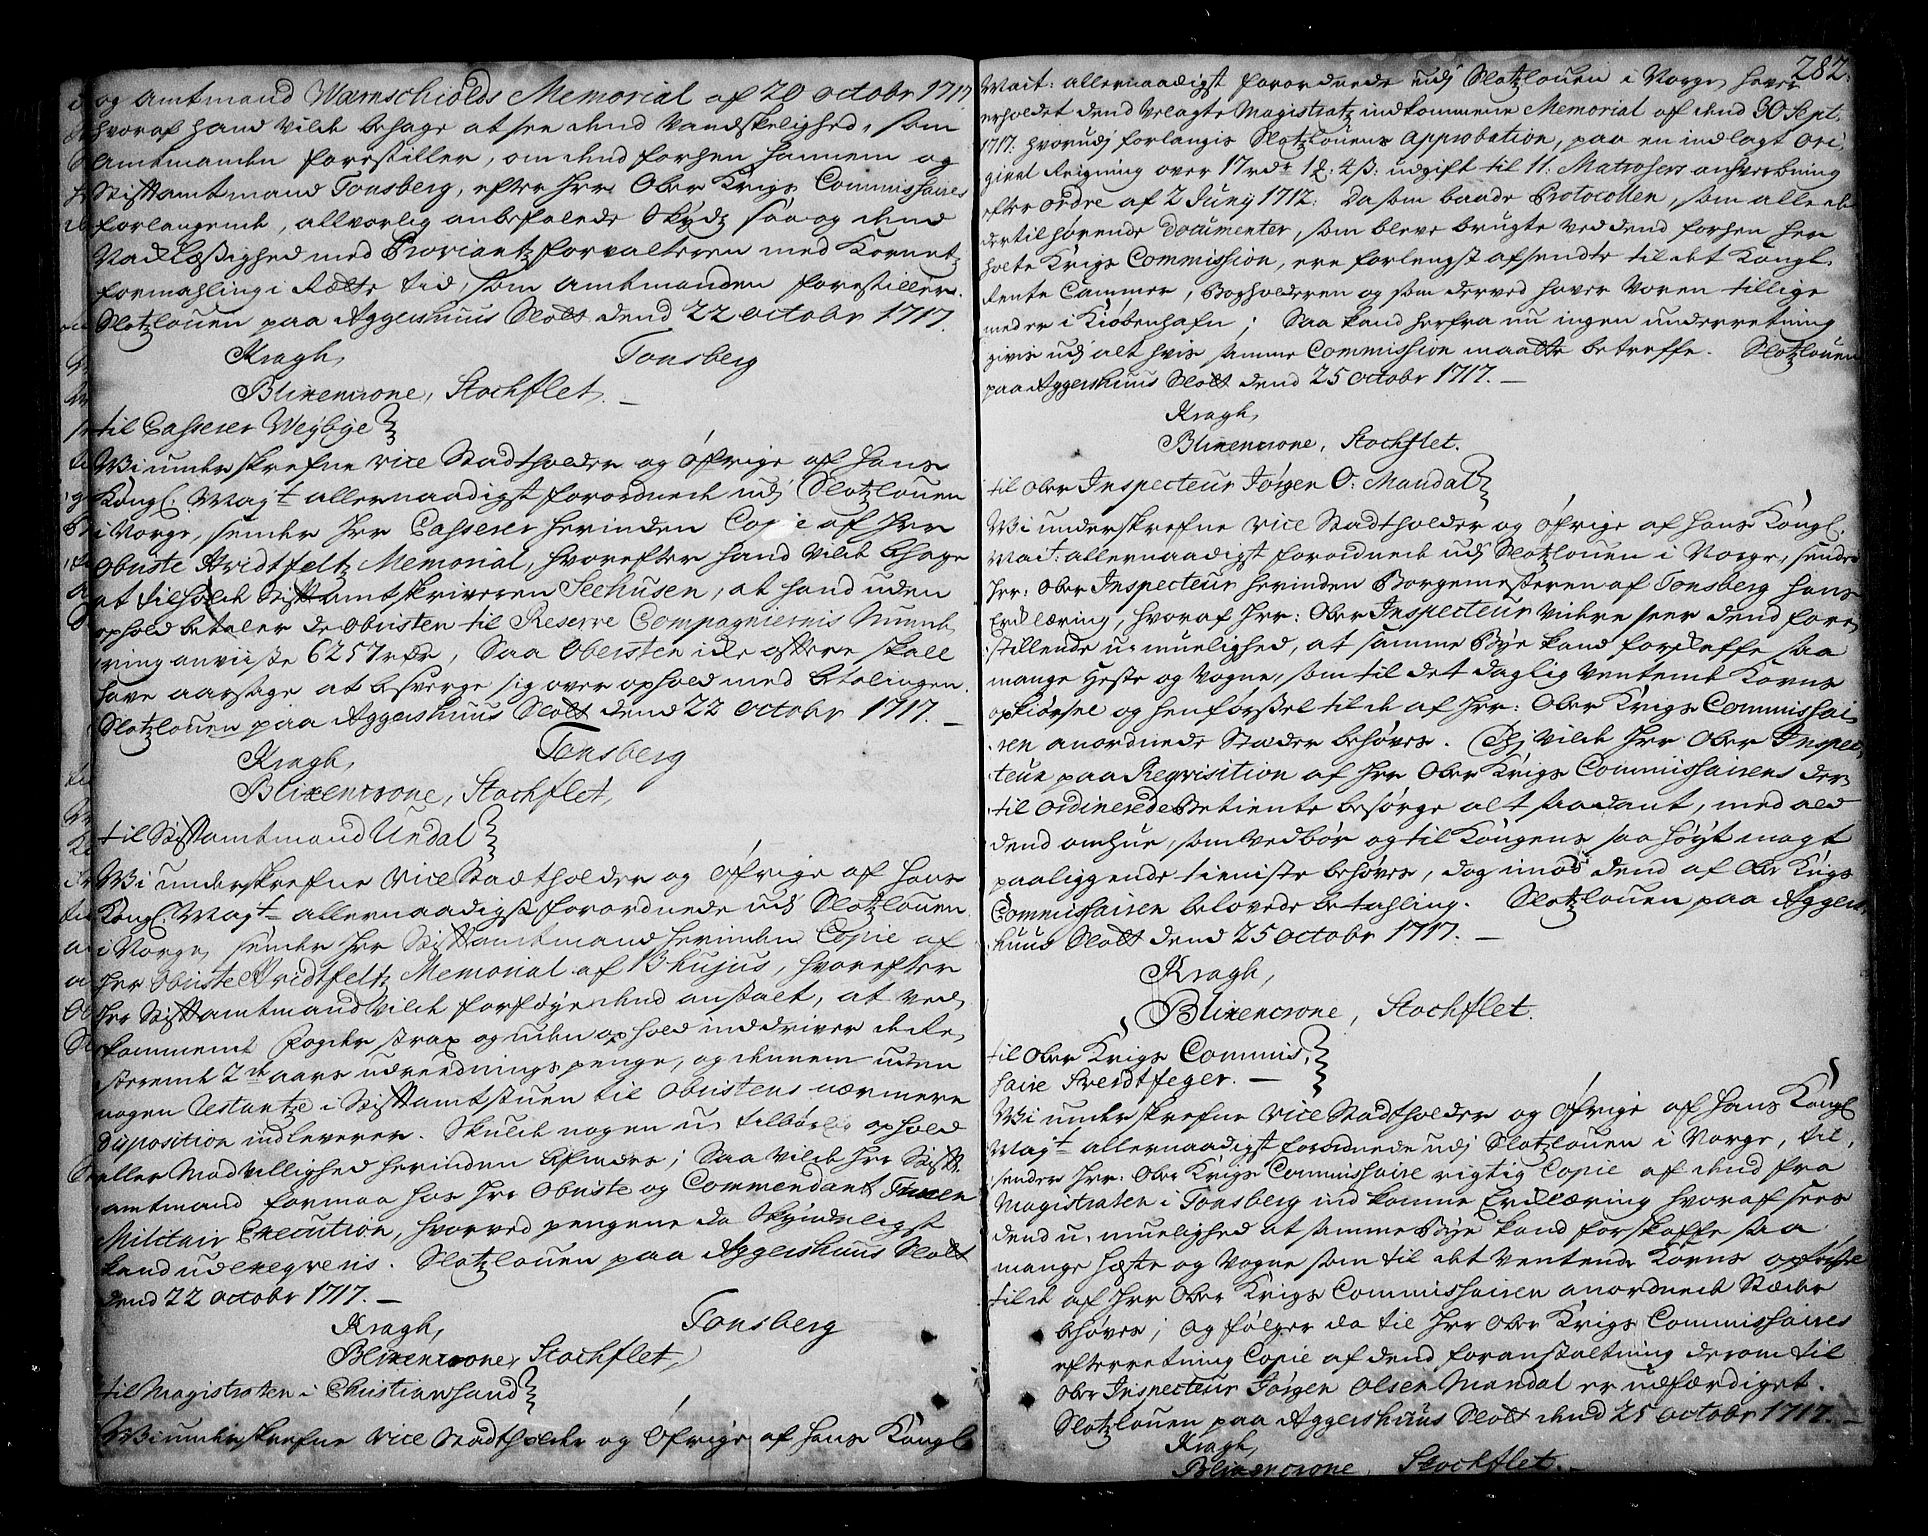 og Amtmand Warnschiolds Memorial af 20 octobr 1717
hvoraf hand vilde behage at see dend Vandskelighed, som
Amtmanden forestiller, om dend forhen hannem og
Stifftamtmand Tonsberg, efter Hrr Ober Krigs Commissairens
forlangende, allvorlig anbefalede Skydz saa og dend
Nachlæssighed med Proviantzforvalteren med Kornetz
formahling i Rætte tid, som Amtmanden forestiller.
Slotzlouen paa Aggershuus Slott dend 22 octobr 1717.
Kragh, Tonsberg
Blixencrone, Stochflet. —
til Casserer Weybye
Wi underskrefne vice Stadtholder og øfrige af Hans
Kongl. Mayt allernaadigst forordnede udj Slotzlouen
i Norge, sender Hrr Casserer herinden Copie af Hrr
Obriste Hvidtfeltz Memorial, hvorefter hand vilde behage
at tilholde Stifftamtskriveren Seehusen, at hand uden
ophold betaler de Obristen til Reserve Compagniernis Mundte
ring anviiste 6257 rdr, Saa Obersten icke oftere skall
have aarsage at besverge sig over ophold med betalingen.
Slotzlouen paa Aggershuus Slott dend 22 octobr 1717. —
Kragh, Tonsberg
Blixencrone, Stochflet,
til Stifftamtmand Undal
Wi underskrefne Vice Stadtholder og øfrige af Hans
Kongl. Mayt allernaadigst forordnede udj Slotzlouen
i Norge, sender Hrr Stifftamtmand herinden Copie af
Hrr Obriste Hvidtfeltz Memorial af 13 hujus, hvorefter
Hrr Stifftamtmand vilde forføye dend anstalt, at ved
kommende Fogder strax og uden ophold inddriver de Re
sterende 2de aars udredningspenge, og dennem uden
nogen Restantze i Stifftamtstuen til Obristens nærmere
disposition indleverer. Skulde nogen u tilbørlig ophold
eller Modvillighed herinden befindes; Saa vilde Hrr Stifft
amtmand formaa hos Hrr Obriste og Commendant Tuxen
Militair Execution, hvorved pengene da Skyndeligst
kand udexeqveris. Slotzlouen paa Aggershuus Slott
dend 22 octobr 1717. —
Kragh, Tonsberg
Blixencrone, Stochflet,
til Magistraten i Christiansand
Wi underskrefne vice Stadtholder og øfrige af Hans Kongl.
282.
Mait: allernaadigst forordnede udj Slotzlouen i Norge, hever
erholdet dend Velagte Magistratz indkommene Memorial af dend 30 Sept.
1717. hvorudj forlangis Slotzlouens approbation, paa en indlagt ori
ginal Reigning over 17 rdr 1 : 4 ß: udgift til 11: Matrosers anhverbning
efter ordre af 2 Juny 1712: Da som baade Protocollen, som alle de
dertil hørende Documenter, som bleve brugte ved dend forhen her
holte Krigs Commission, ere forlengst afsendte til det Kongl.
Rente Cammer, Bogholderen og som derved haver Voren tillige
med er i Kiøbenhafn; Saa kand herfra nu ingen underretning
givis udj alt hvis samme Commission maatte betreffe. Slotzlouen
paa Aggershuus Slott dend 25 octobr 1717. —
Kragh,
Blixencrone, Stochflet.
til Ober Inspecteur Jørgen O: Mandal
Wi underskrefne vice Stadtholder og øfrige af Hans Kongl.
Mait: allernaadigst forordnede udj Slotzlouen i Norge, sender
Hrr: Ober Inspecteur herinden Borgemesteren af Tonsberg hans
Erklæring, hvoraf Hrr: Ober Inspecteur videre seer dend fore
stillende u-muelighed, at samme Bye kand forskaffe saa
mange Heste og Vogne, som til det daglig ventende Korns
opkiørsel og henførsel til de af Hrr: Ober Krigs Commissai
ren anordnede Stæder behøves. Thj vilde Hrr Ober Inspec
teur paa Reqvisition af Hrr Ober Krigs Commissairens der
til ordinerede Betiente besørge alt saadant, med ald
dend omhue, som vedbør og til Kongens saa høyt magt
paaliggende tieniste behøves, dog imod dend af Ober Krigs
Commissairen belovede betahling. Slotzlouen paa Aggers
huus Slott dend 25 octobr 1717. —
Kragh,
Blixencrone, Stochflet.
til Ober Krigs Commis
saire Sverdtfeger. —
Wi underskrefne vice Stadtholder og øfrige af Hans Kongl.
Mayt allernaadigst forordnede udj Slotzlouen i Norge, til
sender Hrr: Ober Krigs Commissaire rigtig Copie af dend fra
Magistraten i Tonsberg indkomne Erklæring hvoraf sees
dend u-muelighed at samme Bye kand forskaffe saa
mange Hæste og Vogne som til det Ventende Korns opførsel
til de af Hrr Ober Krigs Commissairen anordnede Stæder
behøves; og følger da til Hrr Ober Krigs Commissaires
efterretning Copie af dend foranstaltning derom til
Ober Inspecteur Jørgen Olsen Mandal er udfærdiget.
Slotzlouen paa Aggershuus Slott dend 25 octobr 1717. —
Kragh,
Blixencrone, Stochflet. —